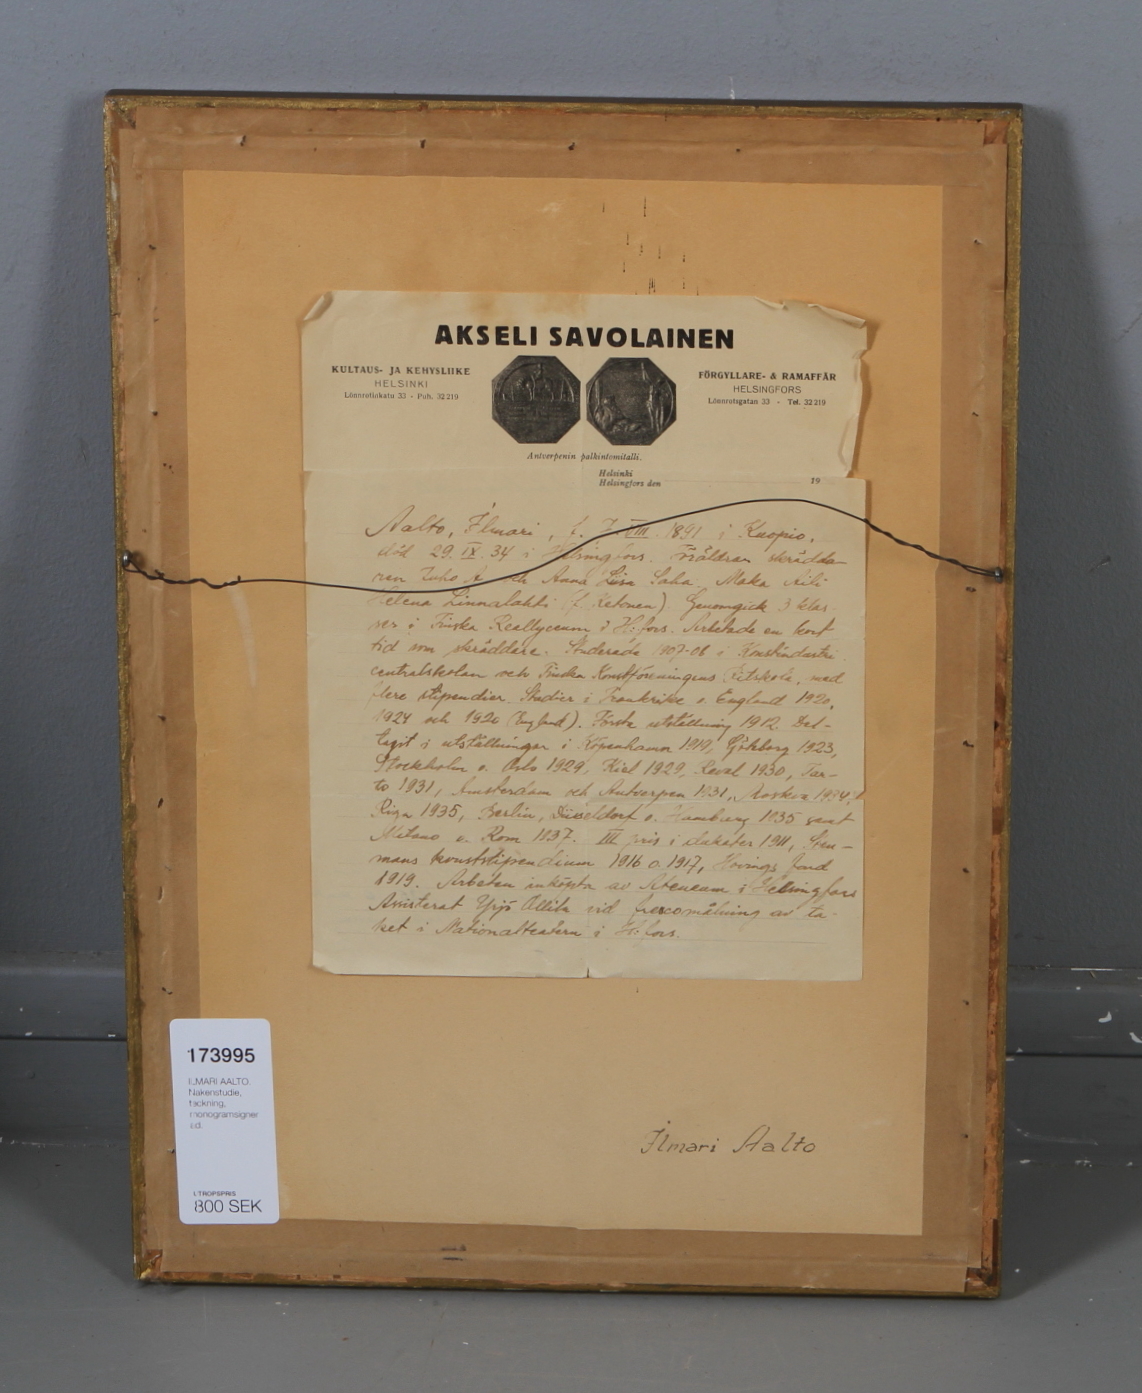 AKSELI SAVOLAINEN
KULTAUS- JA KEHYSLIIKE
HELSINKI
Lönnrotinkatu 33 - Puh. 32 219
FÖRGYLLARE- & RAMAFFÄR
HELSINGFORS
Lönnrotsgatan 33 - Tel. 32 219
Antverpenin palkintomitalli.
Helsinki
Helsingfors den 19
Aalto, Ilmari, f. 7. VIII. 1891 i Kuopio,
död 29. IX. 34 i Helsingfors. Föräldrar skrädda-
ren Juho A och Anna Lisa Saha. Maka Aili
Helena Linnalahti (f. Ketonen) Genomgick 3 klas-
ser i Finska Reallyceum i H:fors. Arbetade en kort
tid som skräddare. Studerade 1907-08 i Konstindustri
centralskolan och Finska Konstföreningens Ritskola, med
flere stipendier. Studier i Frankrike o. England 1920,
1924 och (England). Första utställning 1912. Del-
tagit i utställningar i Köpenhamn 1919, Göteborg 1923,
Stockholm o. Oslo 1929, Kiel 1929, Reval 1930, Tar-
to 1931, Amsterdam och Antverpen 1931, Moskva 1934,
Riga 1935, Berlin, Düsseldorf o. Hamburg 1935 samt
Milano o. Rom 1937. III pris i 1911, Sten-
mans konststipendium 1916 o. 1917, Hovings fond
1919. Arbeten inköpta av Ateneum i Helsingfors
Assisterat Yrjö Ollila vid frescomålning av ta-
ket i Nationalteatern i H:fors.
173995
ILMARI AALTO.
Nakenstudie,
teckning,
monogramsigner
ad.
UTROPSPRIS
800 SEK
Ilmari Aalto